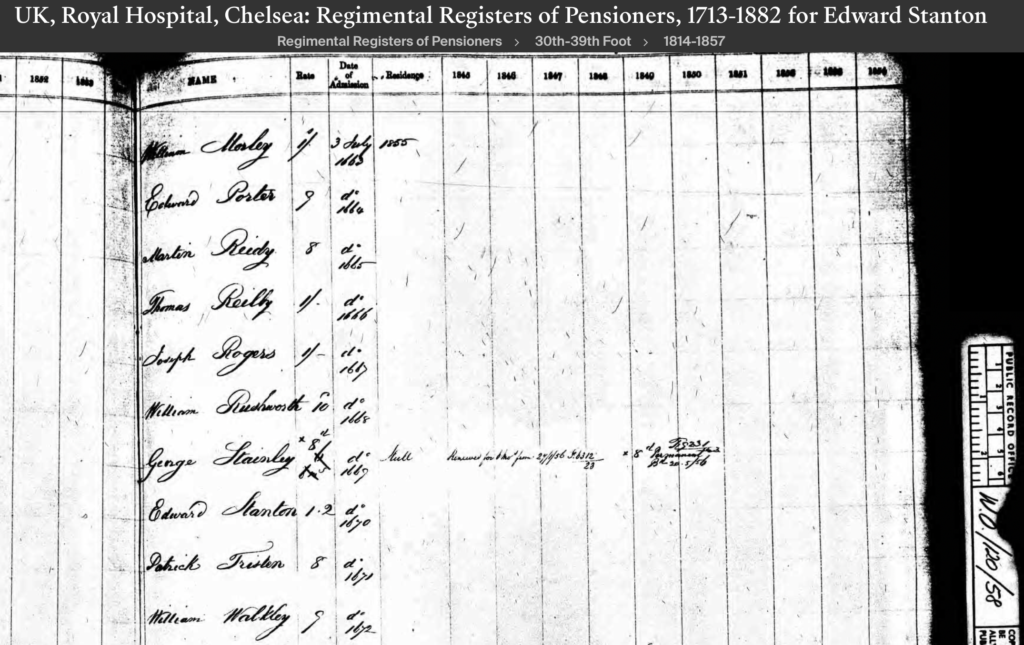 UK, Royal Hospital, Chelsea: Regimental Registers of Pensioners, 1713-1882 for Edward Stanton
Regimental Registers of Pensioners > 30th-39th Foot > 1814-1857
1852 1853 NAME Rate Date of Admission Residence 1845 1846 1847 1848 1849 1850 1851 1852 1853 1854
William Morley 1/ 3 July 1855
1663
Edward Porter 9 do
1664
Martin Reidy 8 do
1665
Thomas Reilly 1/- do
1666
Joseph Rogers 1/- do
1667
William Rushworth 10 do
1668
George Stainley 8d do Hull Renewed for from × 8d Permanent
1669
Edward Stanton 1.2 do
1670
Patrick Tristen 8 do
1671
William Walkley 9 do
1672
PUBLIC RECORD OFFICE
W.O/120/58